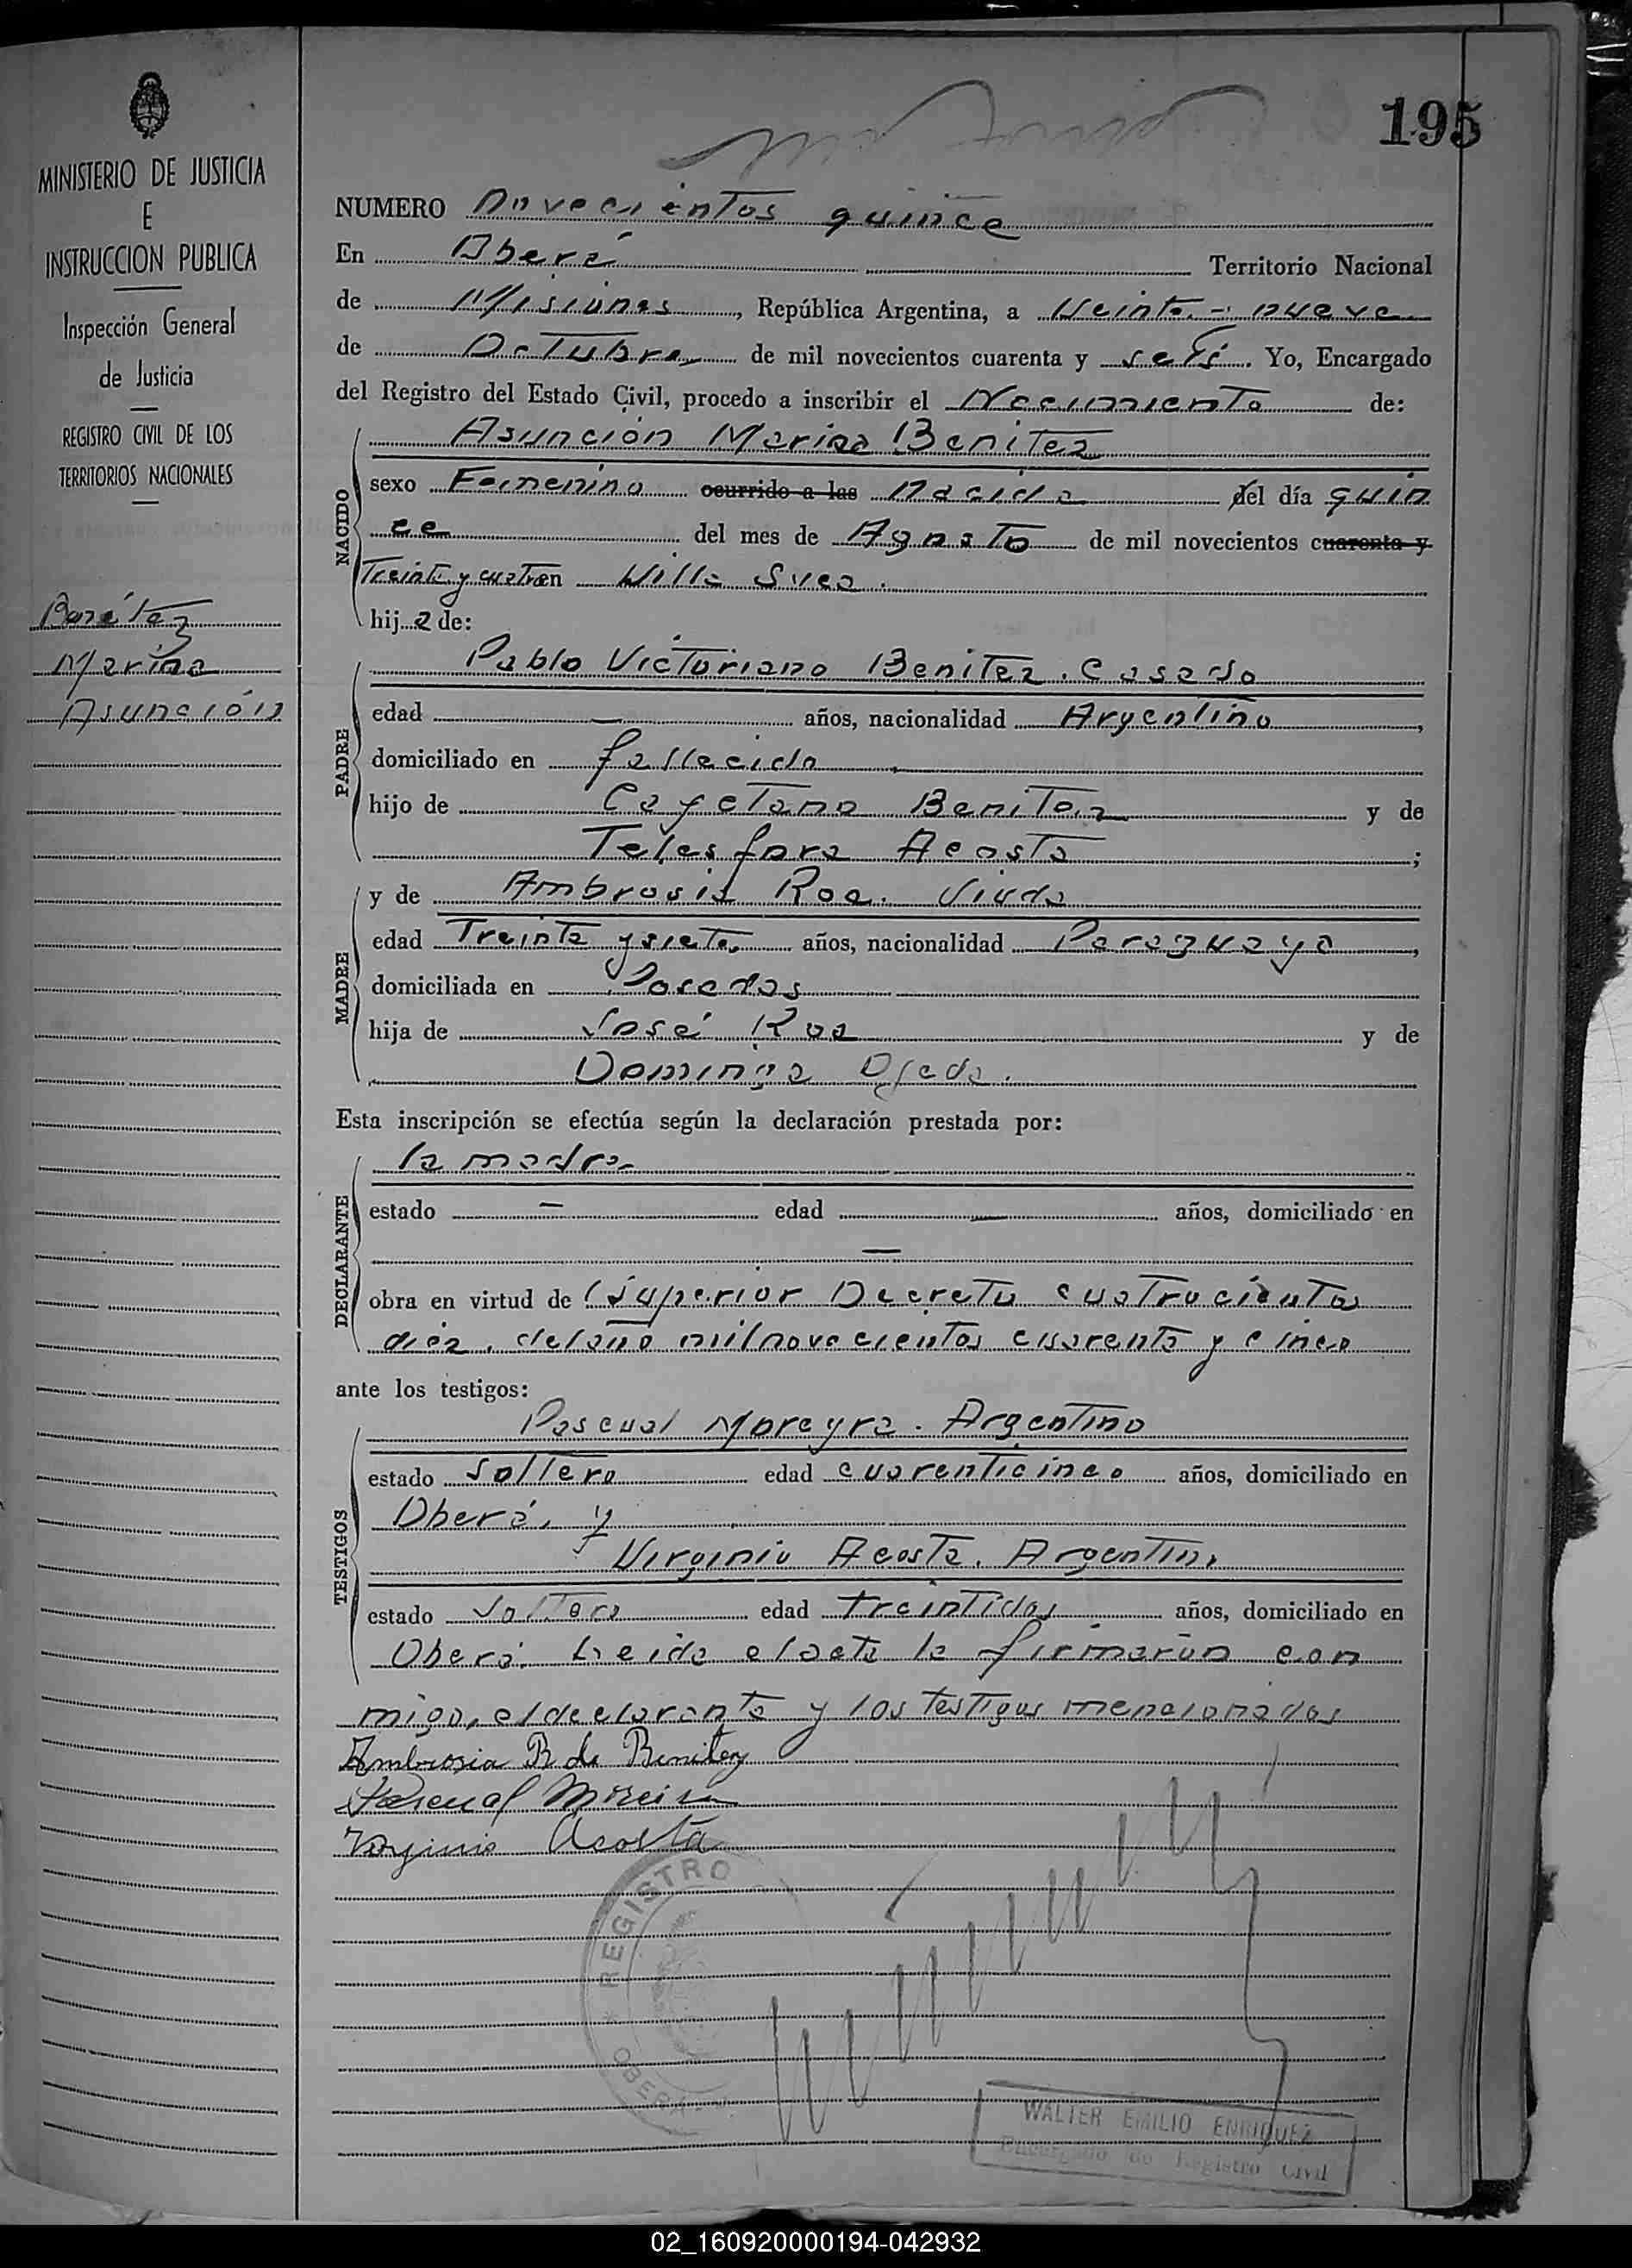 195
MINISTERIO DE JUSTICIA
E
INSTRUCCION PUBLICA
Inspección General
de Justicia
REGISTRO CIVIL DE LOS
TERRITORIOS NACIONALES
Benítez
Marina
Asunción
NUMERO Novecientos quince
En Oberá Territorio Nacional
de Misiones, República Argentina, a Veinte - nueve
de Octubre de mil novecientos cuarenta y seis. Yo, Encargado
del Registro del Estado Civil, procedo a inscribir el Nacimiento de:
NACIDO
Asunción Marina Benitez
sexo Femenino ocurrido a las nacida del día quin
ce del mes de Agosto de mil novecientos cuarenta y
Treinta y cuatro en Villa Svea.
hija de:
PADRE
Pablo Victoriano Benitez. Casado
edad — años, nacionalidad Argentino,
domiciliado en fallecido
hijo de Cayetano Benitez y de
Telesfora Acosta;
MADRE
y de Ambrosia Roa. Viuda
edad Treinta y siete años, nacionalidad Paraguaya,
domiciliada en Posadas
hija de José Roa y de
Dominga Ojeda.
Esta inscripción se efectúa según la declaración prestada por:
DECLARANTE
la madre
estado — edad — años, domiciliado en
—
obra en virtud de Superior Decreto cuatrocientos
diez. del año mil novecientos cuarenta y cinco
ante los testigos:
TESTIGOS
Pascual Moreyra. Argentino
estado Soltero edad cuarenticinco años, domiciliado en
Oberá, y
Virginio Acosta. Argentino
estado Soltero edad treintidos años, domiciliado en
Oberá. Leida el acta la firmaron con
migo, el declarante y los testigos mencionados
Ambrosia R de Benitez
Pascual Moreira
Virginio Acosta
REGISTRO
OBERA
WALTER EMILIO ENRIQUEZ
Encargado de Registro Civil
02_160920000194-042932